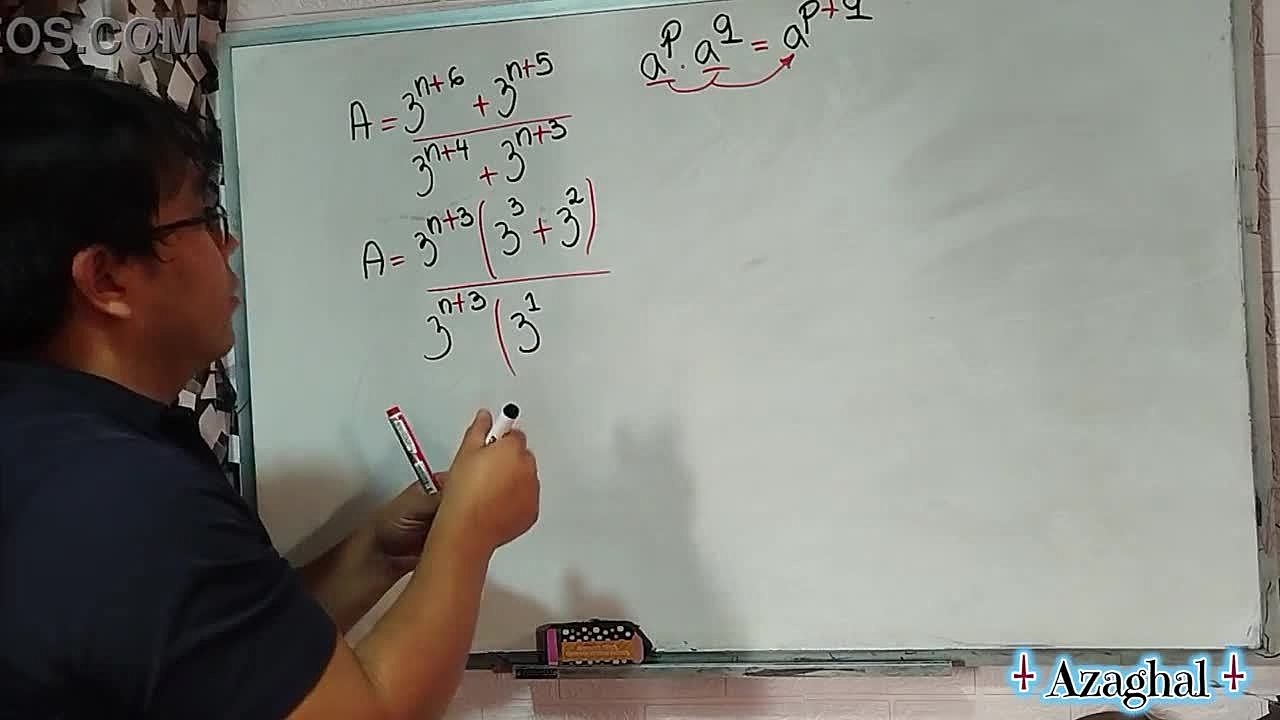 EOS.COM
a^p . a^q = a^{p+q}
A = \frac{3^{n+6} + 3^{n+5}}{3^{n+4} + 3^{n+3}}
A = \frac{3^{n+3}(3^3 + 3^2)}{3^{n+3}(3^1}
Azaghal